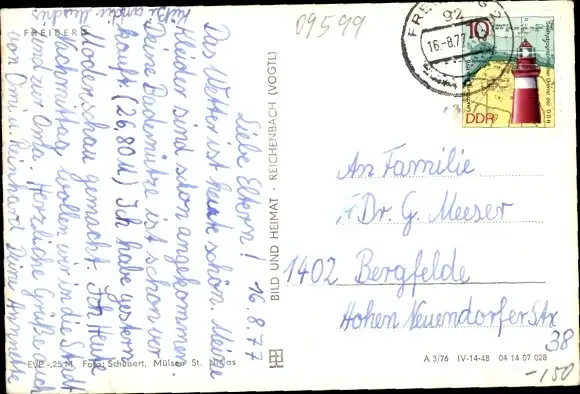 FREIBERG
Grüße an die Mudis
Liebe Eltern! 16.8.77
Das Wetter ist heute schön. Meine
Kleider sind schon angekommen.
Deine Bademütze ist schon ver-
kauft (26,80 M) Ich habe gestern
Modenschau gemacht. Für Heute
Nachmittag wollen wir in die Stadt
und zur Oma. Herzliche Grüße Euch
von Omi u. Reinhard Deine Annette
EVP -,25 M Foto: Schubert, Mülsen St. Niclas
BILD UND HEIMAT · REICHENBACH (VOGTL)
09599
FREIBERG 2
92
16.-8.77
10
DDR
An Familie
Dr. G. Meeser
1402 Bergfelde
Hohen Neuendorfer Str
38
A 3/76 IV-14-48 04 14 07 028
-150